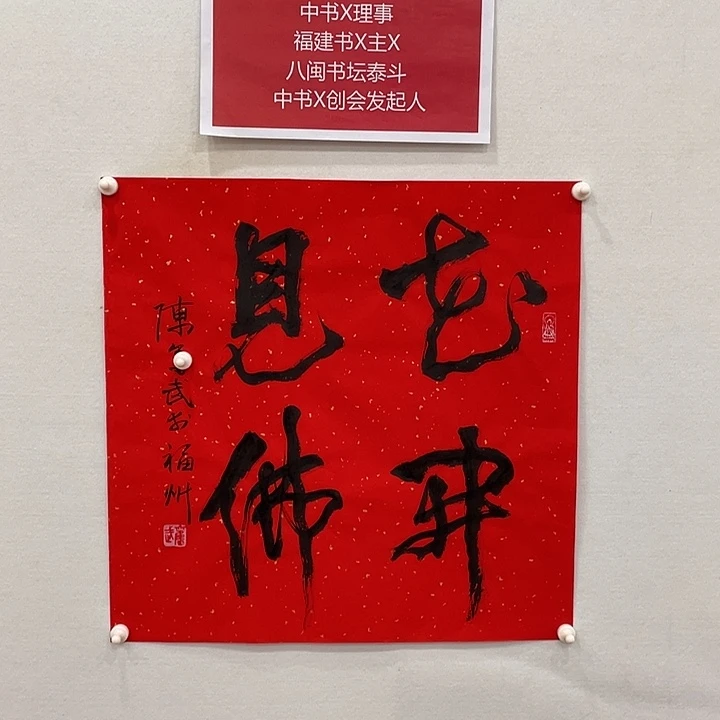 中书X理事
福建书X主X
八闽书坛泰斗
中书X创会发起人
花開
見佛
陳奮武书福州